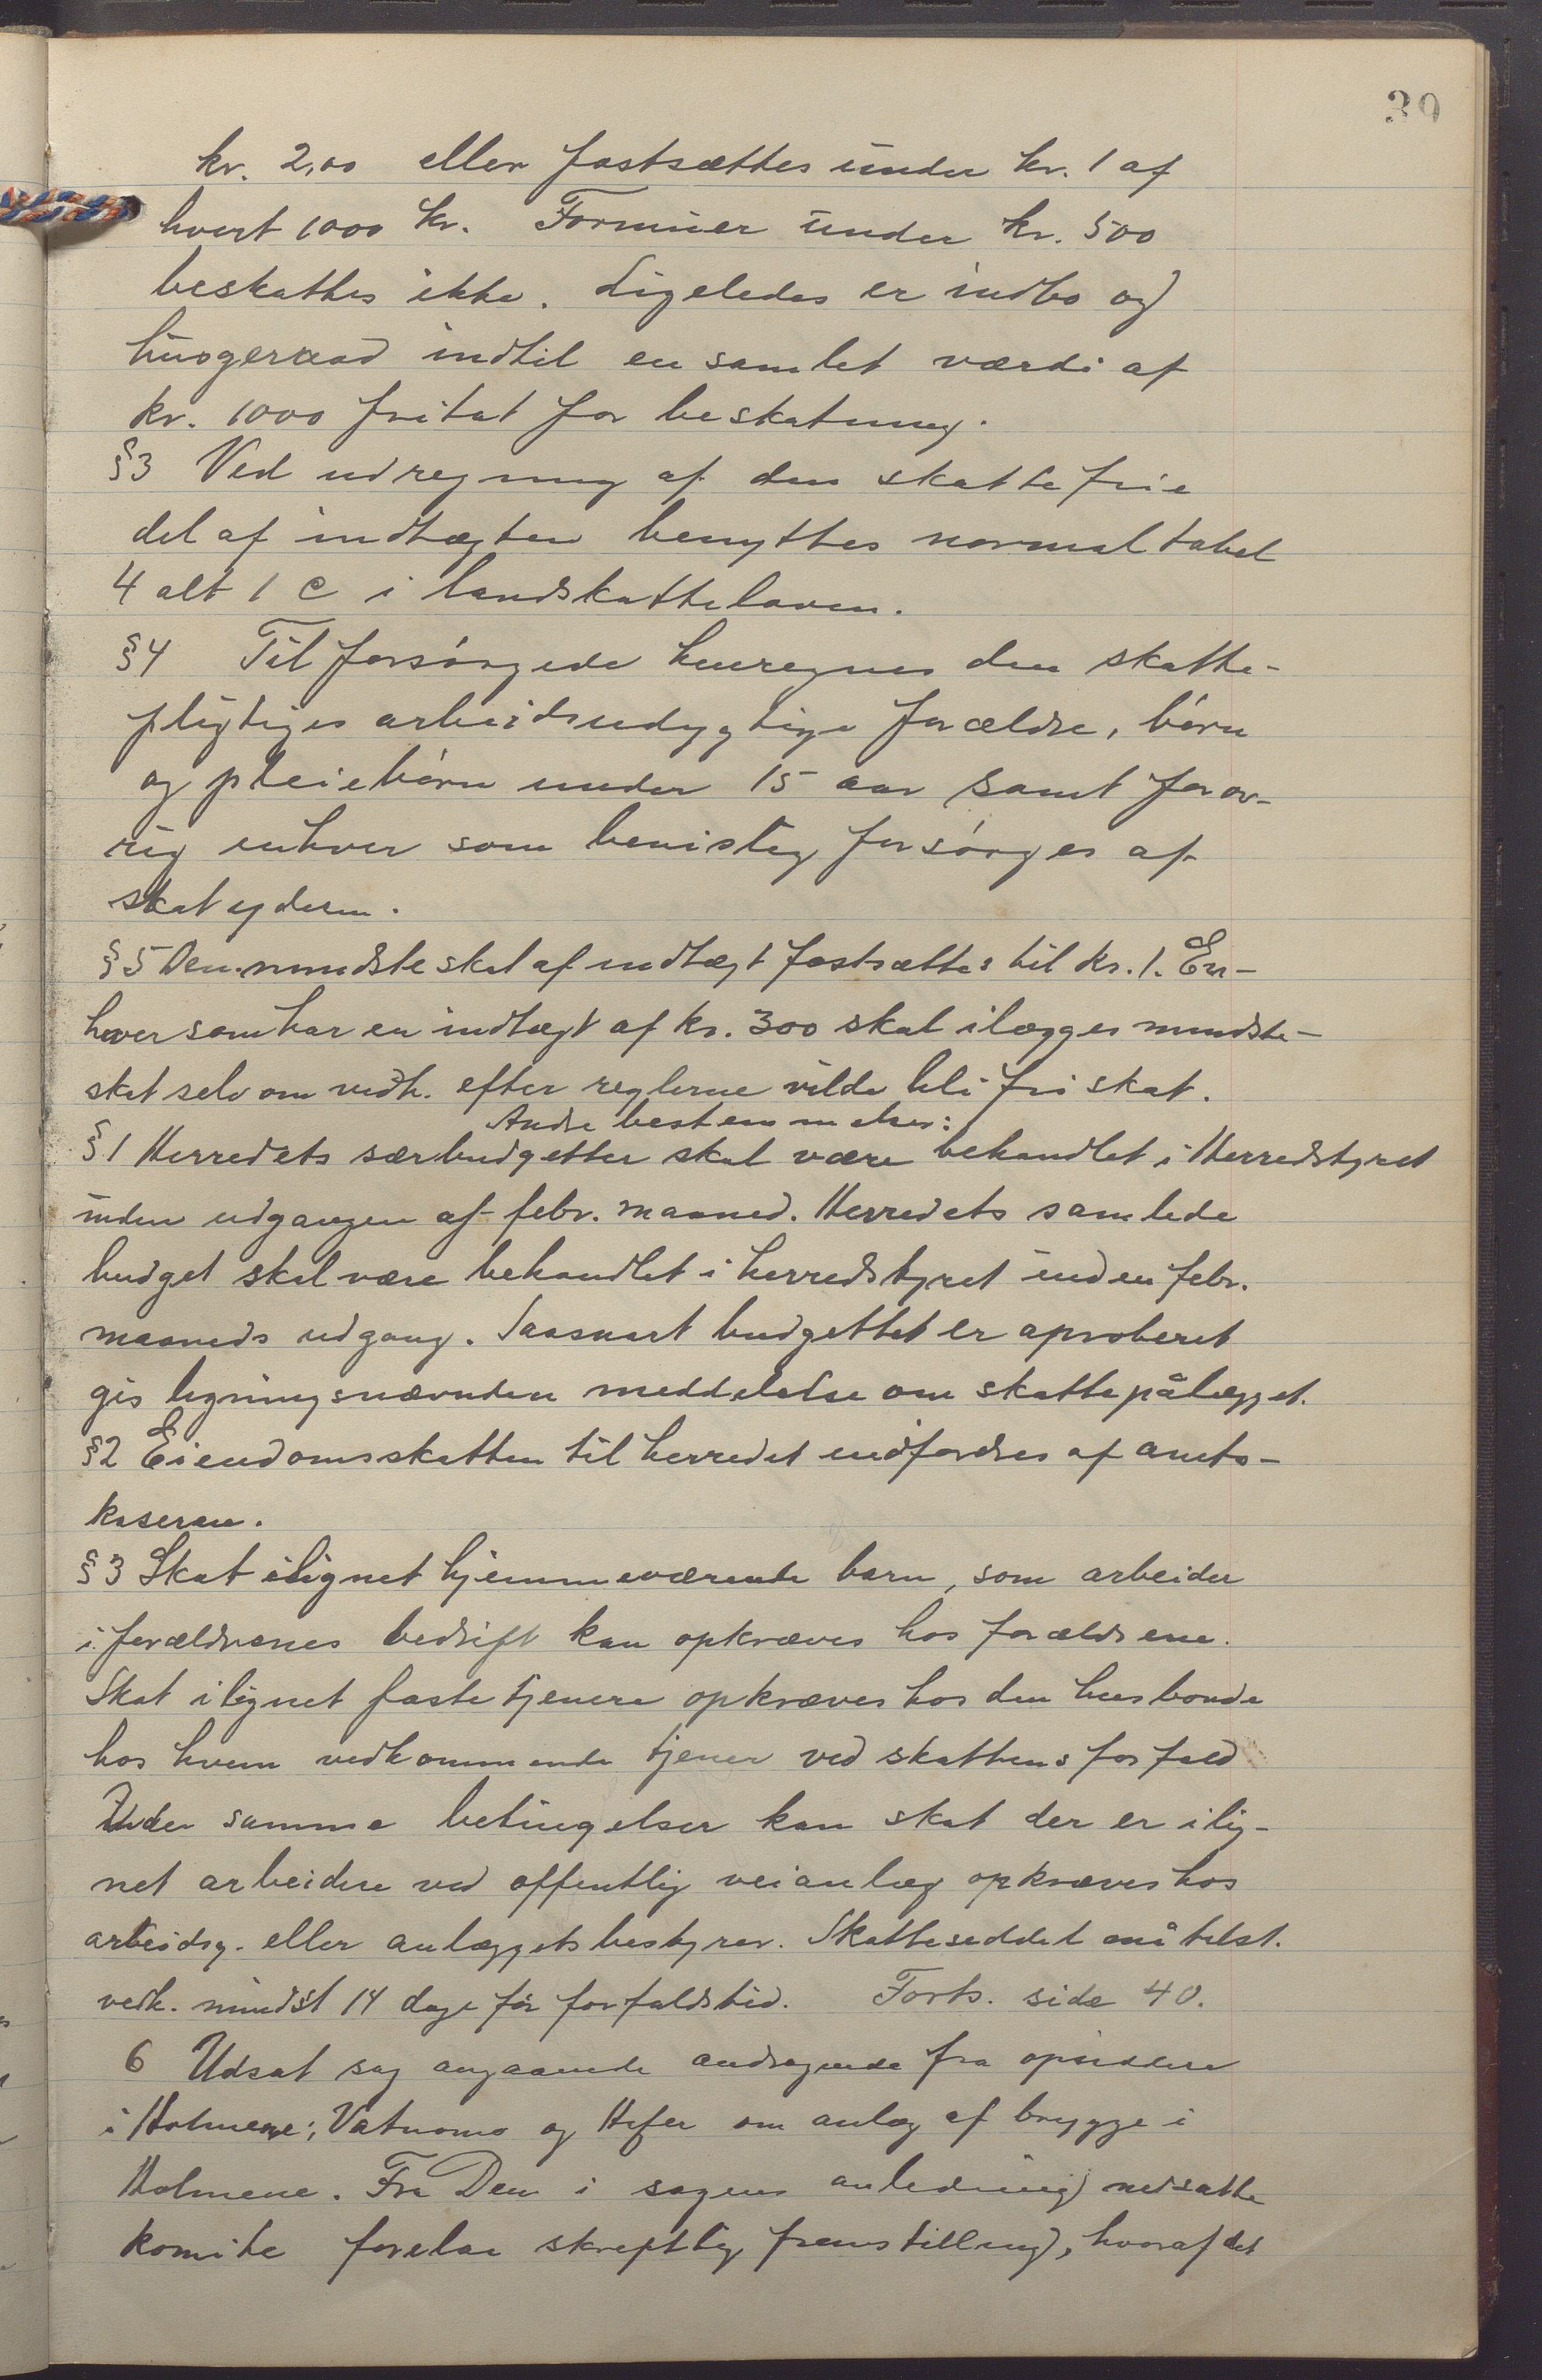 39
kr. 2,00 eller fastsættes under kr. 1 af
hvert 1000 kr. Formuer under kr. 500
beskattes ikke. Ligeledes er indbo og
husgeraad indtil en samlet værdi af
kr. 1000 fritat for beskatning.
§3 Ved udregning af den skattefrie
del af indtægten benyttes normaltabel
4 alt 1 c i landskatteloven.
§4 Til forsørgede henregnes den skatte-
pligtiges arbeidsudygtige forældre, børn
og pleiebørn under 15 aar samt forøv-
rig enhver som bevislig forsørges af
skatyderen.
§5 Den mindste skat af indtægt fastsættes til kr. 1. En-
hver som har en indtægt af kr. 300 skal ilægges mindste-
skat selv om vedk. efter reglerne vilde bli fri skat.
Andre bestemmelser:
§1 Herredets særbudgetter skal være behandlet i Herredstyret
inden udgangen af febr. maaned. Herredets samlede
budget skal være behandlet i herredstyret inden febr.
maaneds udgang. Saasnart budgettet er aproberet
gis ligningsnævnden meddelelse om skattepålægget.
§2 Eiendomsskatten til herredet indfordres af amts-
kaseren.
§3 Skat ilignet hjemmeværende barn, som arbeider
i forældrenes bedrift kan opkræves hos forældrene.
Skat ilignet faste tjenere opkræves hos den husbonde
hos hvem vedkommende tjener ved skattens forfald
Under samme betingelser kan skat der er ilig-
net arbeidere ved offentlig veianlæg opkræves hos
arbeidsg. eller anlæggets bestyrer. Skatteseddel må tilst.
vedk. mindst 14 dage før forfaldstid. Forts. side 40.
6 Udsat sag angaaende andragende fra opsiddere
i Holmene, Vatnamo og Hafer om anlæg af brygge i
Holmene. Fra Den i sagens anledning nedsatte
komite forelaa skreftlig fremstilling, hvoraf det